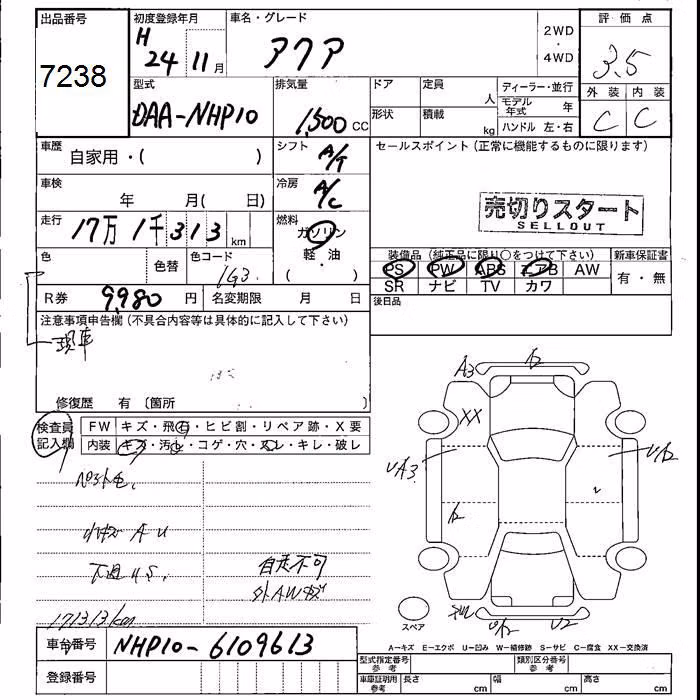 出品番号
7238
初度登録年月
H 24 11月
車名・グレード
アクア
2WD
・
4WD
評価点
3.5
外装 内装
C C
型式
DAA-NHP10
排気量
1,500 CC
ドア 定員 人
形状 積載 kg
ディーラー・並行
モデル年式 年
ハンドル 左・右
車歴
自家用・( )
シフト
A/T
セールスポイント (正常に機能するものに限ります)
車検
年 月( 日)
冷房
A/C
売切りスタート
SELLOUT
走行
17万 1千 313 km
燃料
ガソリン
軽・油
( )
色 色替 色コード
1G3
装備品 (純正品に限り○をつけて下さい)
PS PW ABS エアB AW
SR ナビ TV カワ
新車保証書
有・無
R券 9,980 円 名変期限 月 日
後日品
注意事項申告欄 (不具合内容等は具体的に記入して下さい)
現車
修復歴 有 〔箇所 〕
検査員記入欄
FW キズ・飛石・ヒビ割・リペア跡・X要
内装 キズ・汚レ・コゲ・穴・スレ・キレ・破レ
A U
U S.
自走不可
外AWキズ
171313km
A3
A2
XX
UA3
U2
スペア
A-キズ E-エクボ U-凹み W-補修跡 S-サビ C-腐食 XX-交換済
車台番号 NHP10-6109613
登録番号
型式指定番号 参考
類別区分番号 参考
車庫証明用 参考
長さ cm 幅 cm 高さ cm